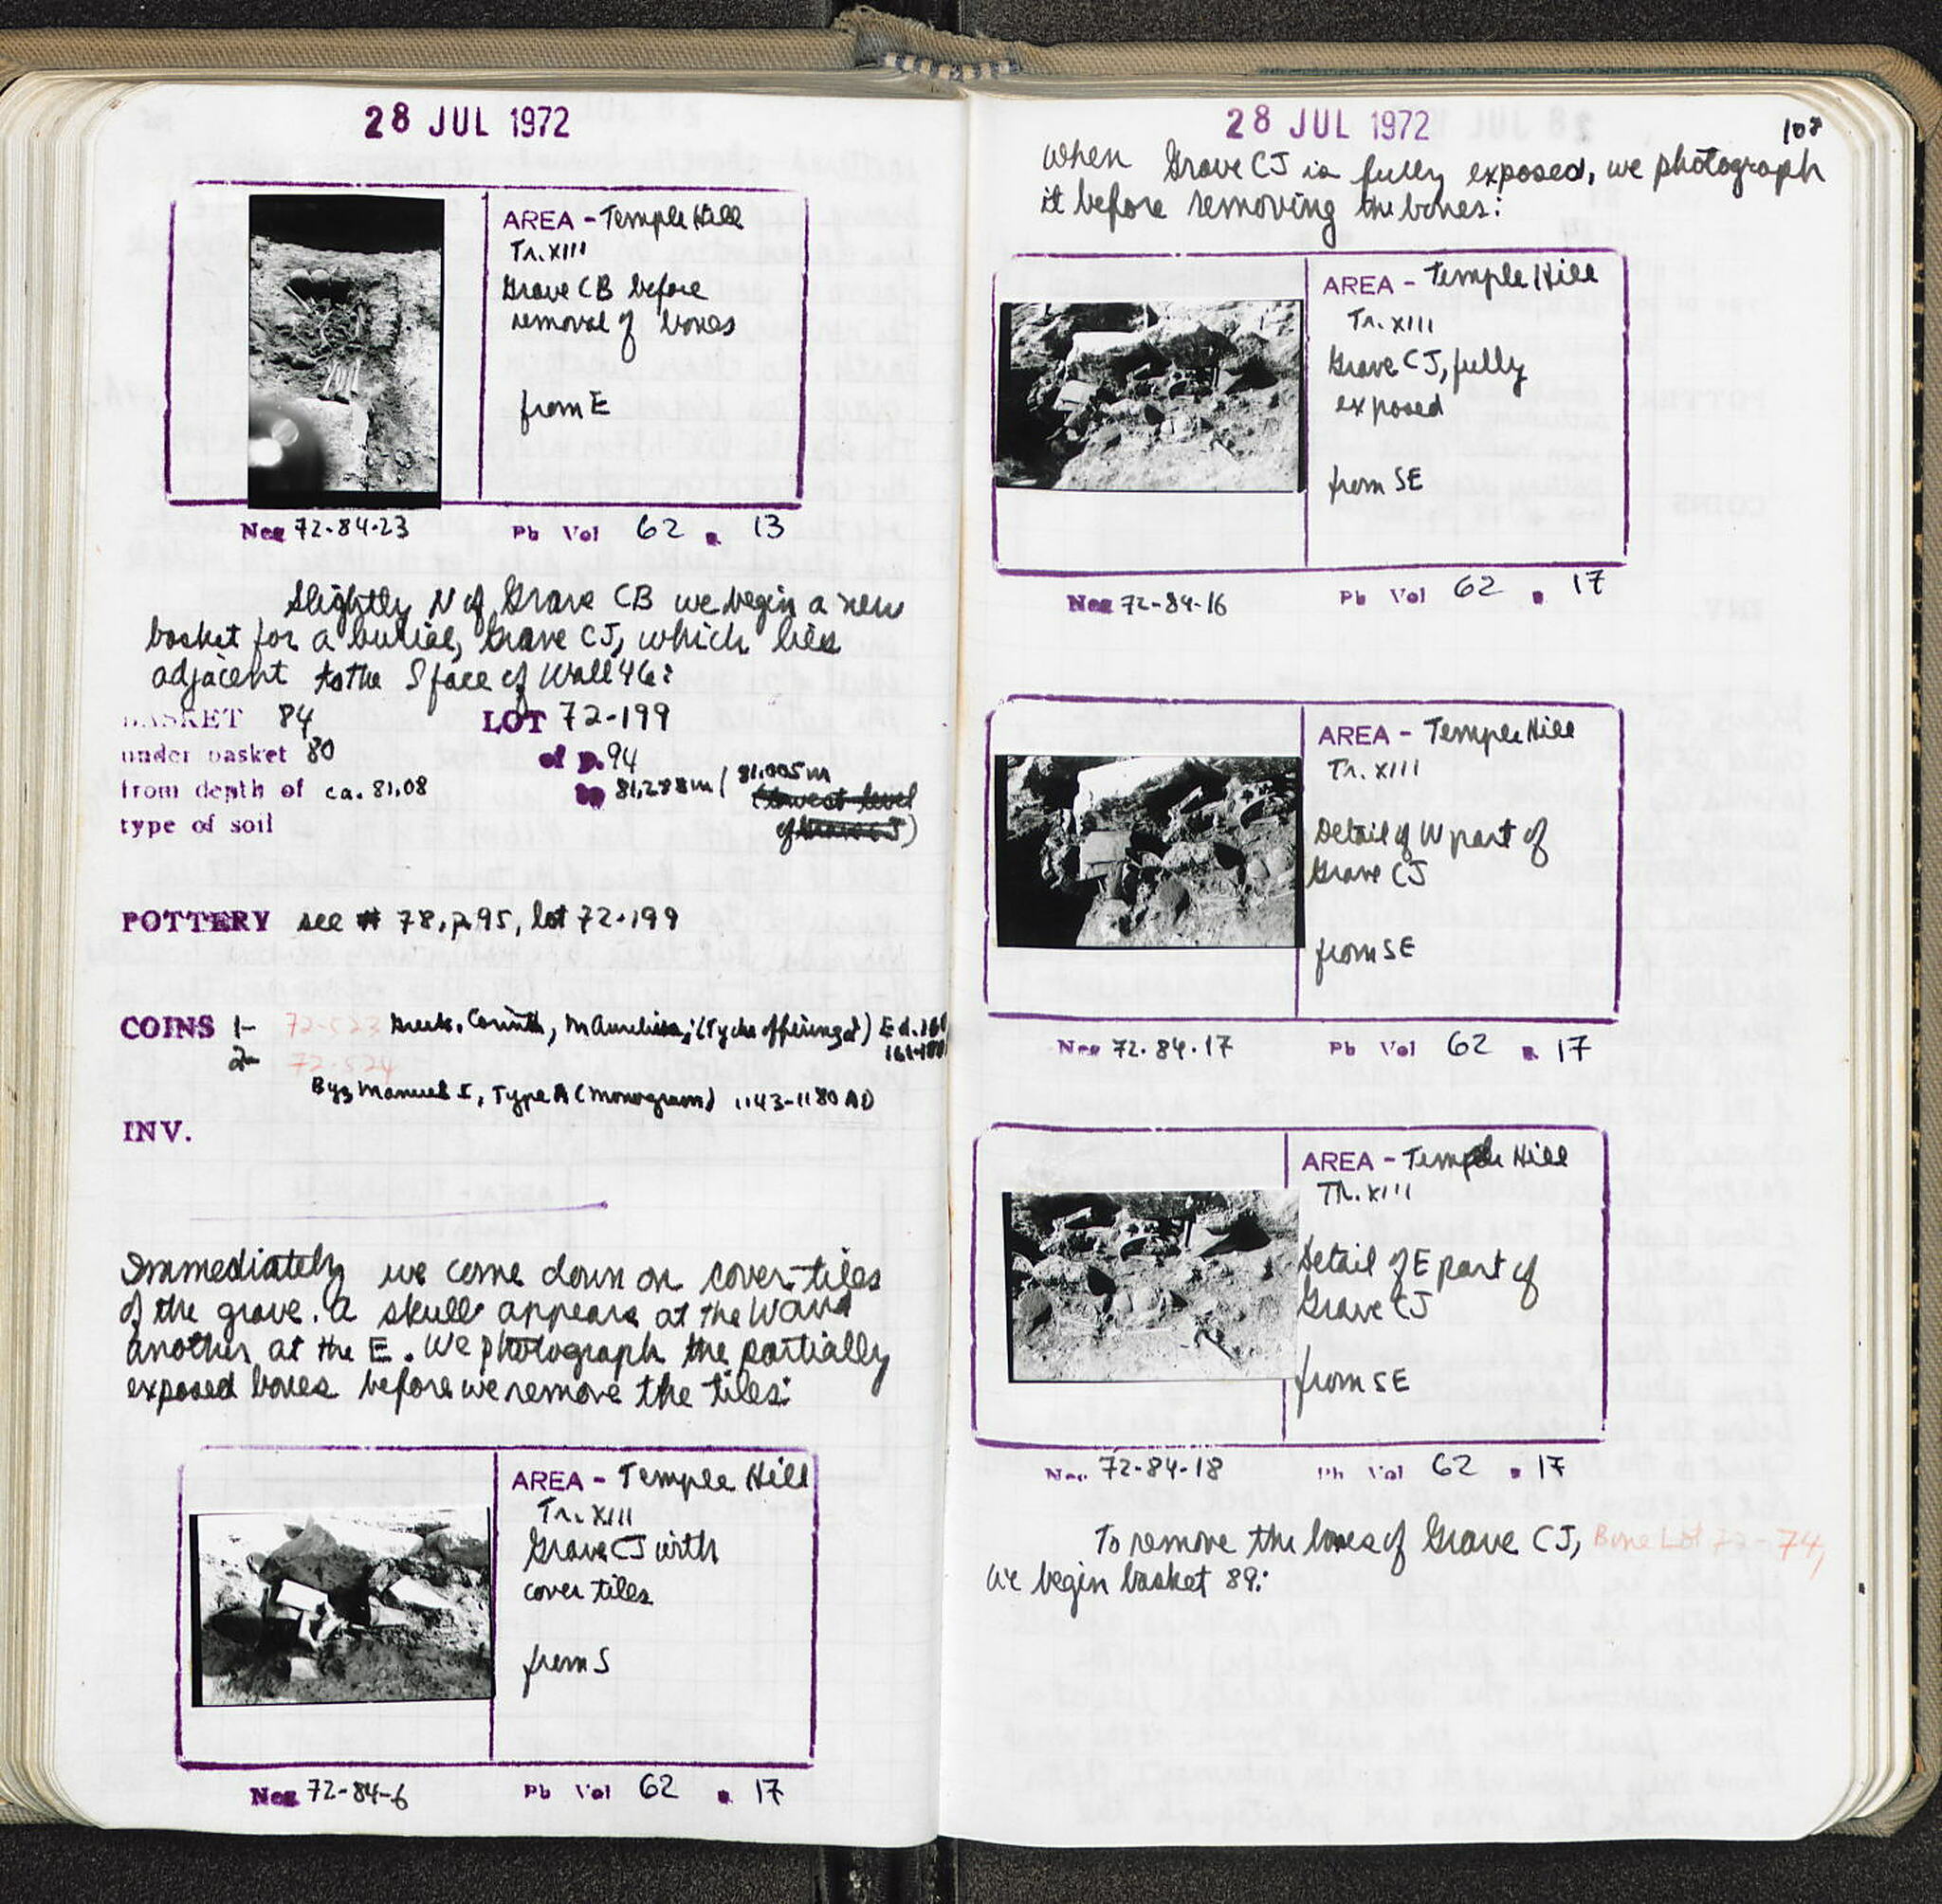 28 JUL 1972
AREA - Temple Hill
Tr. XIII
Grave CB before
removal of bones
from E
Neg 72-84-23 Pb Vol 62 p. 13
Slightly N of Grave CB we begin a new
basket for a burial, Grave CJ, which lies
adjacent to the S face of Wall 46:
BASKET 84 LOT 72-199
under basket 80 of p. 94
from depth of ca. 81.08 to 81.288m / 81.005m
(lowest level
type of soil
of Grave CJ)
POTTERY see # 78, p. 95, lot 72-199
COINS 1- 72-523 Greek, Corinth, M Aurelius, (Tyche offering) Ed.
161-180
2- 72-524
Byz Manuel I, Type A (Monogram) 1143-1180 AD
INV.
Immediately we come down on cover tiles
of the grave. A skull appears at the W and
another at the E. We photograph the partially
exposed bones before we remove the tiles:
AREA - Temple Hill
Tr. XIII
Grave CJ with
cover tiles
from S
Neg 72-84-6 Pb Vol 62 p. 17
28 JUL 1972
108
When Grave CJ is fully exposed, we photograph
it before removing the bones:
AREA - Temple Hill
Tr. XIII
Grave CJ, fully
exposed
from SE
Neg 72-84-16 Pb Vol 62 p. 17
AREA - Temple Hill
Tr. XIII
Detail of W part of
Grave CJ
from SE
Neg 72-84-17 Pb Vol 62 p. 17
AREA - Temple Hill
Tr. XIII
Detail of E part of
Grave CJ
from SE
Neg 72-84-18 Pb Vol 62 p. 17
To remove the bones of Grave CJ, Bone Lot 72-74,
we begin basket 89: